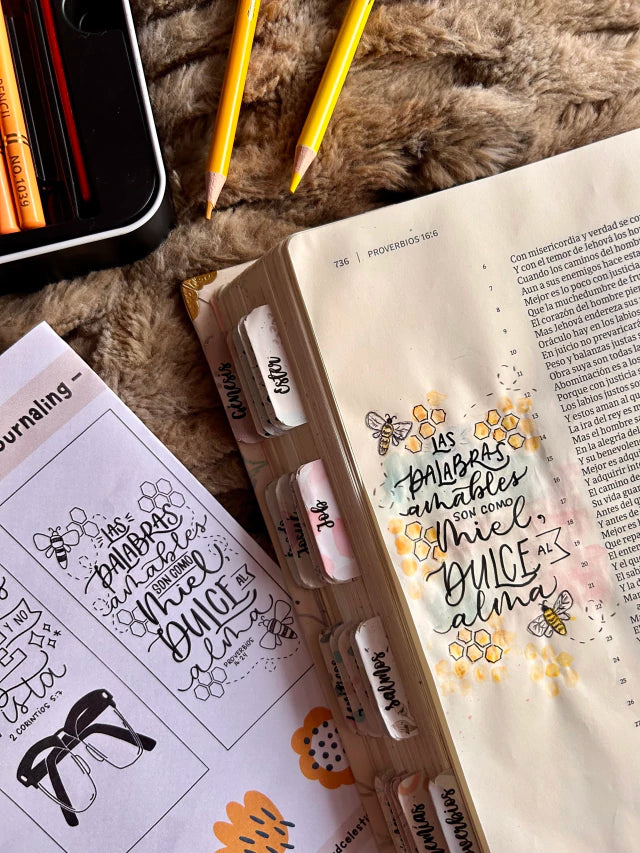 PENCIL
NO. 1039
736 | PROVERBIOS 16:6
6
Con misericordia y verdad se co
Y con el temor de Jehová los ho
7
Cuando los caminos del hom
Aun a sus enemigos hace esta
8
Mejor es lo poco con justicia
Que la muchedumbre de f
9
El corazón del hombre pie
Mas Jehová endereza sus
10
Oráculo hay en los labios
En juicio no prevaricar
11
Peso y balanzas justas s
Obra suya son todas la
12
Abominación es a los
Porque con justicia
13
Los labios justos
Y estos aman al q
14
La ira del rey es
Mas el hombre sa
15
En la alegría del
Y su benevolen
16
Mejor es adqu
Y adquirir in
17
El camino de
Su vida gua
18
Antes del q
Y antes de
19
Mejor es
Que repa
20
El ente
Y el qu
21
El sab
Y la d
22
Man
23
24
25
26
LAS
PALABRAS
amables
SON COMO
Miel,
DULCE AL
alma
Génesis
Ester
Josué
Job
Salmos
overbios
ournaling –
LAS
PALABRAS
amables
SON COMO
Miel
DULCE AL
alma
PROVERBIOS
16:24
Y NO
ista
2 CORINTIOS 5:7
dcelest